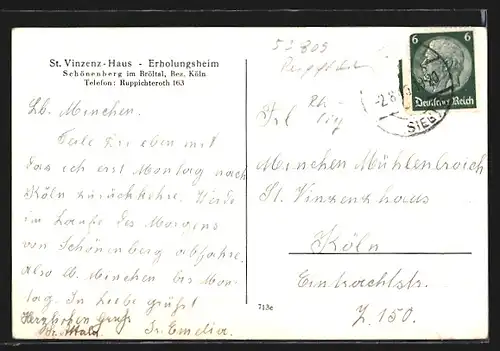 St. Vinzenz-Haus - Erholungsheim
Schönenberg im Bröltal, Bez. Köln
Telefon: Ruppichteroth 163
Lb. Minchen.
Teile dir eben mit
das ich erst Montag nach
Köln zurückkehre. Werde
im Laufe des Morgens
von Schönenberg abfahre.
Also lb. Minchen bis Mon-
tag. In Liebe grüßt
Herzlichen Gruß Sr. Emelia.
Sr.
52809
6 6
Deutsches Reich
-2.8.
SIEG
Frl
Minchen Mühlenbroich
St. Vinzenzhaus
Köln
Eintrachtstr.
Z. 150.
713c